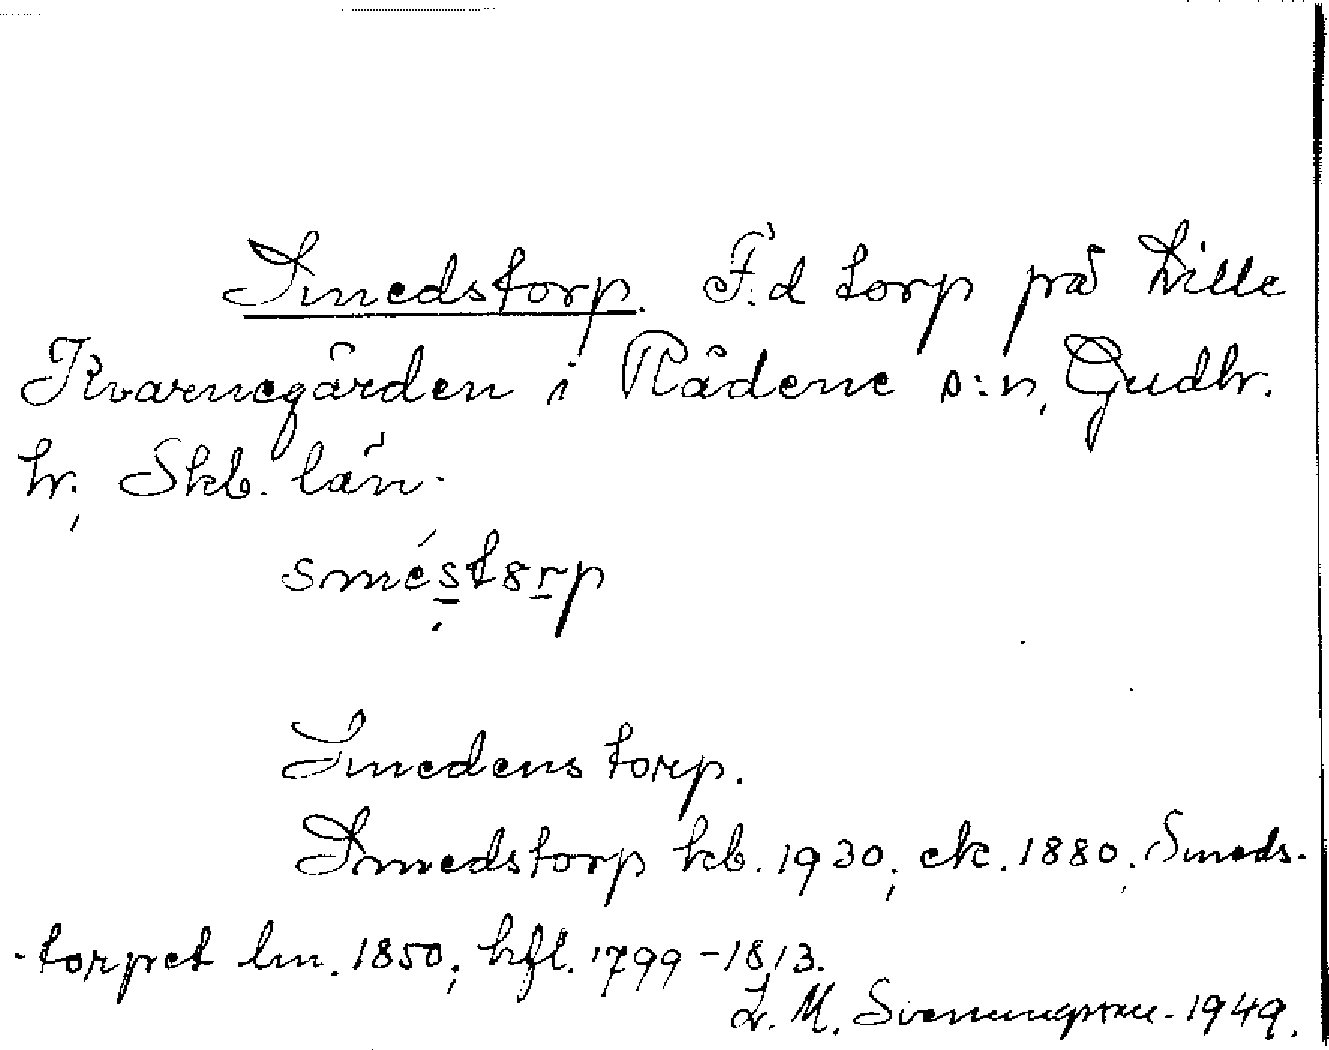 Smedstorp. F.d torp på Lilla
Kvarnegården i Rådene s:n, Gudhr.
hr., Skb. län.
sméstorp
Smedens torp.
Smedstorp kb. 1930; ek. 1880; Smeds-
-torpet lm. 1850; hfl. 1799-1813.
L. M. Svenungsson. 1949.